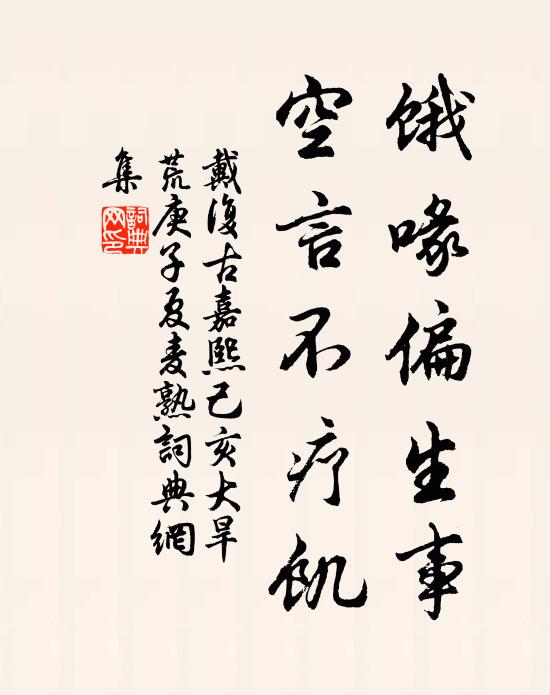 餓喙偏生事
空言不疗飢
戴復古嘉熙己亥大旱
荒庚子夏麦熟詞典網
集
詞典
网印